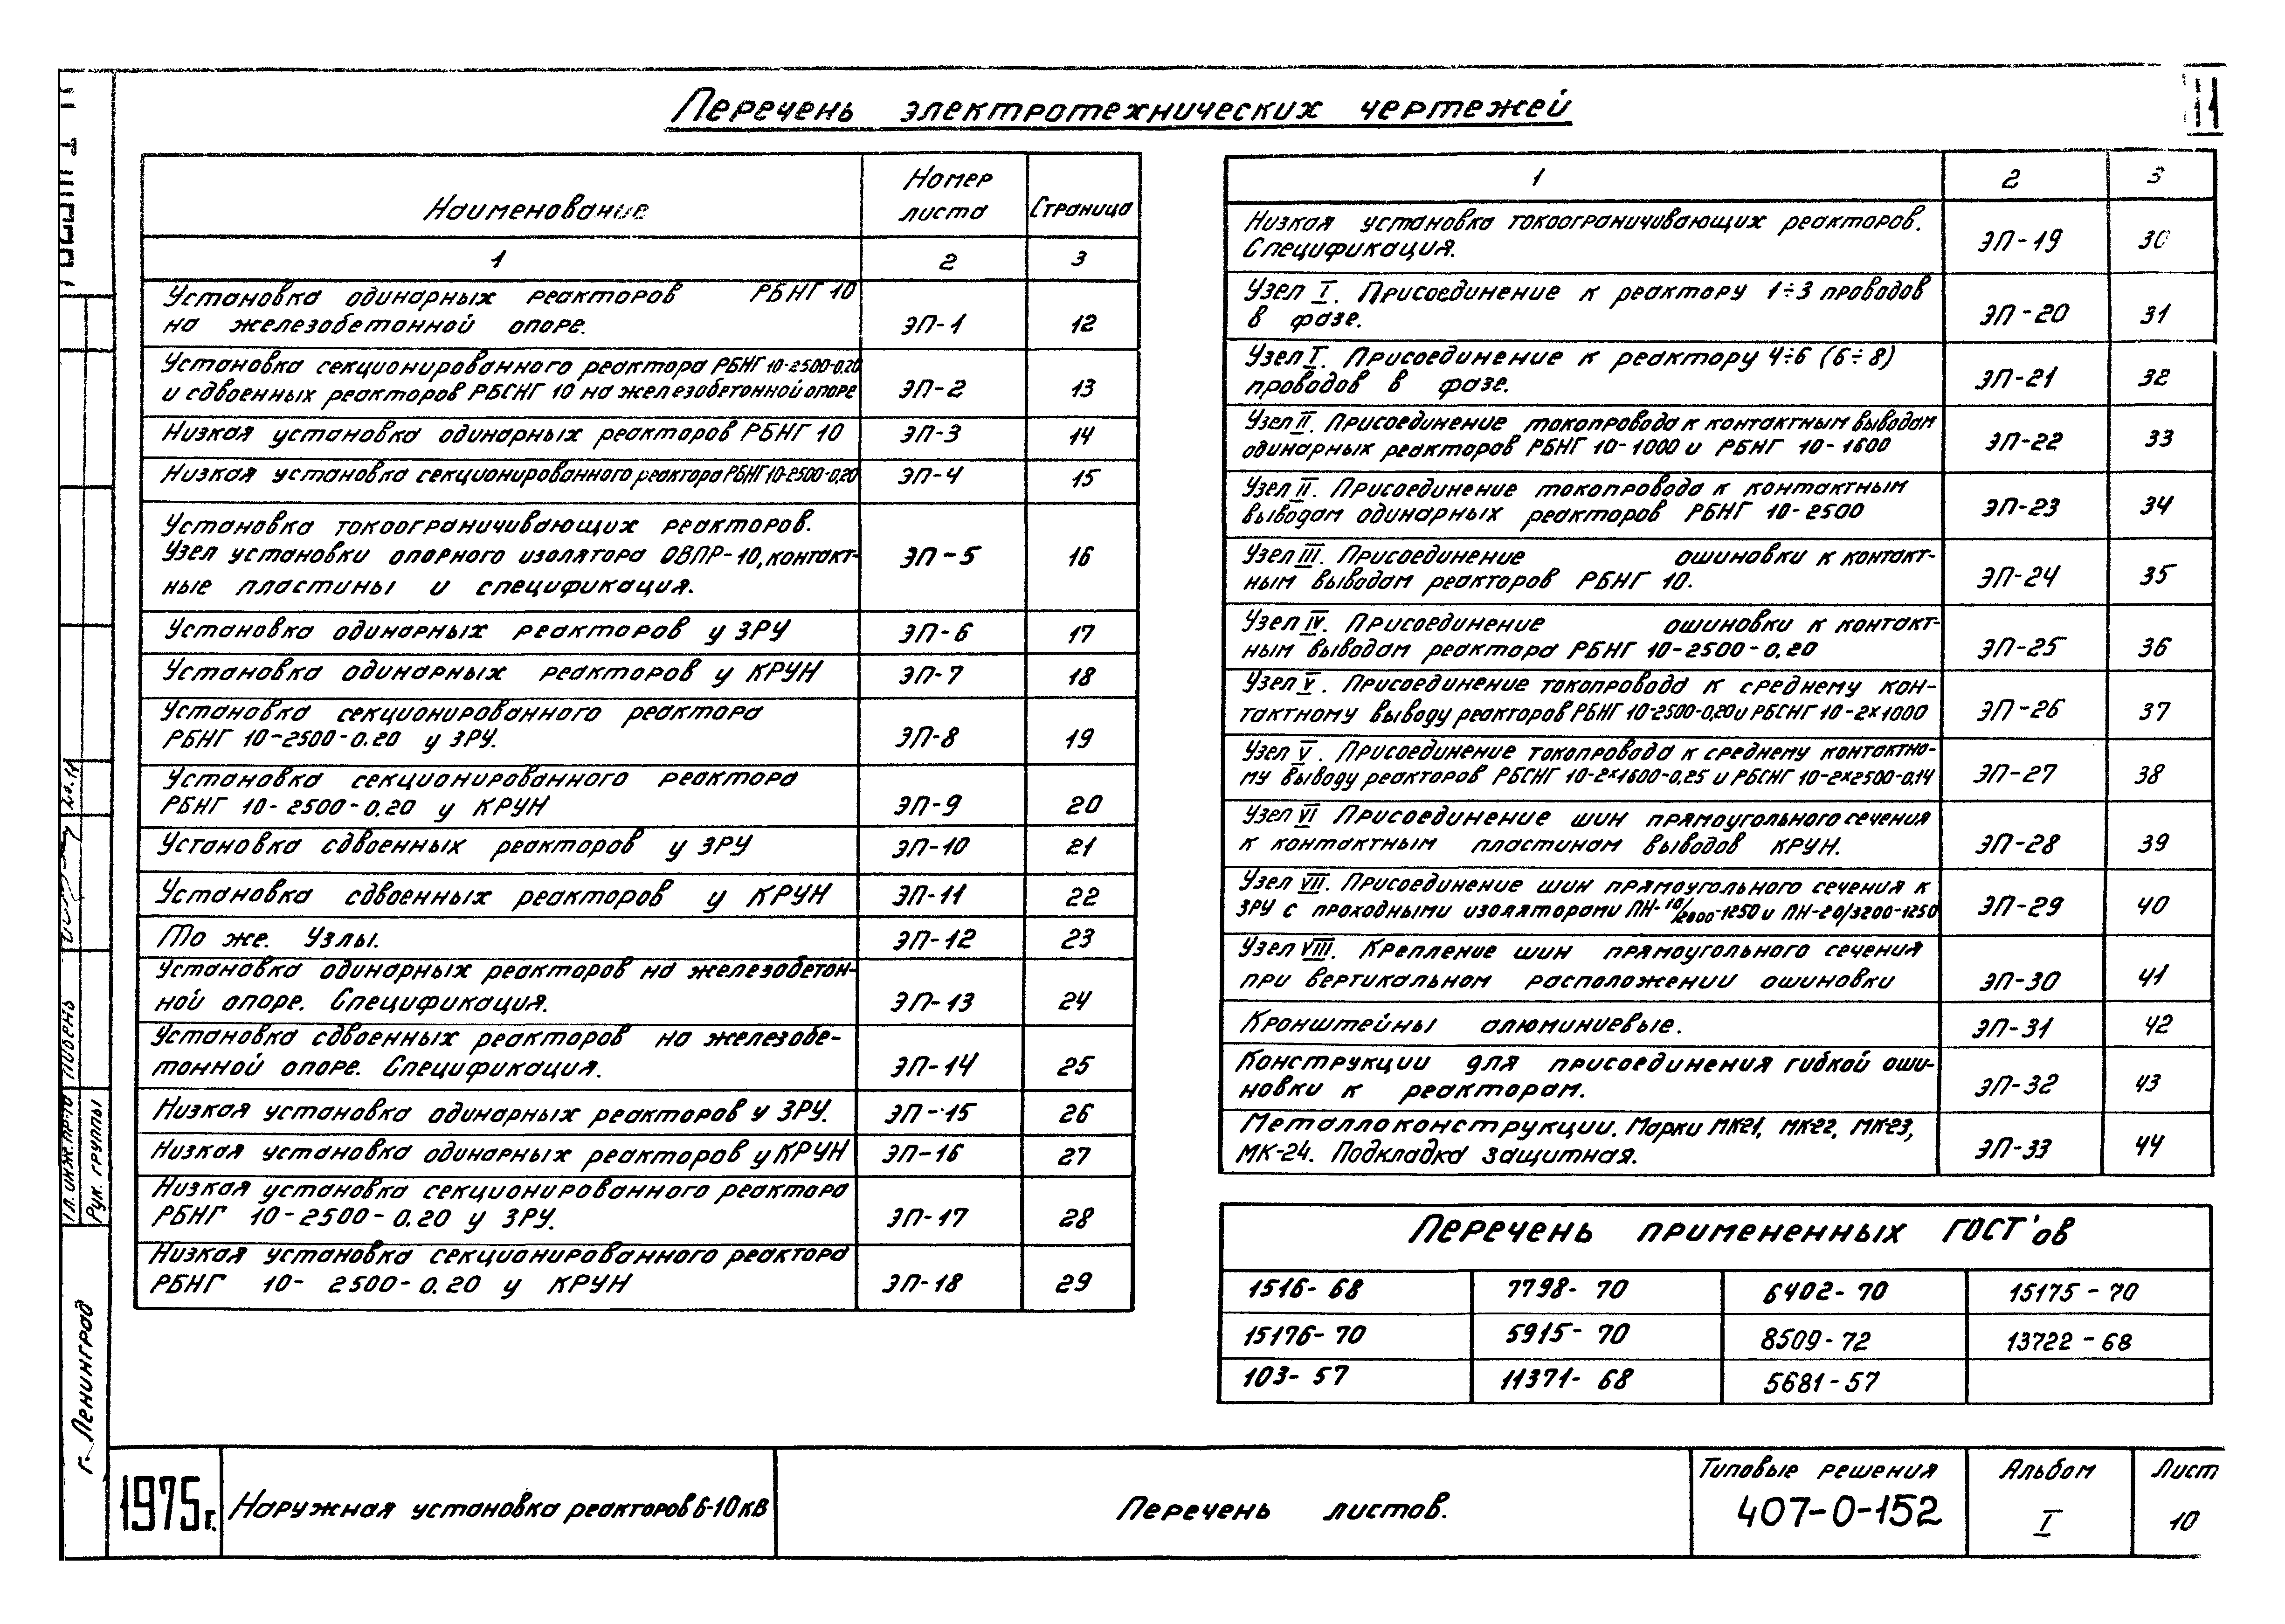 11
Перечень электротехнических чертежей
Наименование
Номер листа
Страница
1 2 3
Установка одинарных реакторов РБНГ 10
на железобетонной опоре. ЭП-1 12
Установка секционированного реактора РБНГ 10-2500-0,20
и сдвоенных реакторов РБСНГ 10 на железобетонной опоре ЭП-2 13
Низкая установка одинарных реакторов РБНГ 10 ЭП-3 14
Низкая установка секционированного реактора РБНГ 10-2500-0,20 ЭП-4 15
Установка токоограничивающих реакторов.
Узел установки опорного изолятора ОВПР-10, контакт- ЭП-5 16
ные пластины и спецификация.
Установка одинарных реакторов у ЗРУ ЭП-6 17
Установка одинарных реакторов у КРУН ЭП-7 18
Установка секционированного реактора
РБНГ 10-2500-0.20 у ЗРУ. ЭП-8 19
Установка секционированного реактора
РБНГ 10-2500-0,20 у КРУН ЭП-9 20
Установка сдвоенных реакторов у ЗРУ ЭП-10 21
Установка сдвоенных реакторов у КРУН ЭП-11 22
То же. Узлы. ЭП-12 23
Установка одинарных реакторов на железобетон-
ной опоре. Спецификация. ЭП-13 24
Установка сдвоенных реакторов на железобе-
тонной опоре. Спецификация. ЭП-14 25
Низкая установка одинарных реакторов у ЗРУ. ЭП-15 26
Низкая установка одинарных реакторов у КРУН ЭП-16 27
Низкая установка секционированного реактора
РБНГ 10-2500-0.20 у ЗРУ. ЭП-17 28
Низкая установка секционированного реактора
РБНГ 10-2500-0.20 у КРУН ЭП-18 29
1 2 3
Низкая установка токоограничивающих реакторов.
Спецификация. ЭП-19 30
Узел I. Присоединение к реактору 1÷3 проводов
в фазе. ЭП-20 31
Узел I. Присоединение к реактору 4÷6 (6÷8)
проводов в фазе. ЭП-21 32
Узел II. Присоединение токопровода к контактным выводам
одинарных реакторов РБНГ 10-1000 и РБНГ 10-1600 ЭП-22 33
Узел II. Присоединение токопровода к контактным
выводам одинарных реакторов РБНГ 10-2500 ЭП-23 34
Узел III. Присоединение ошиновки к контакт-
ным выводам реакторов РБНГ 10. ЭП-24 35
Узел IV. Присоединение ошиновки к контакт-
ным выводам реактора РБНГ 10-2500-0,20 ЭП-25 36
Узел V. Присоединение токопровода к среднему кон-
тактному выводу реакторов РБНГ 10-2500-0,20 и РБСНГ 10-2х1000 ЭП-26 37
Узел V. Присоединение токопровода к среднему контактно-
му выводу реакторов РБСНГ 10-2х1600-0,25 и РБСНГ 10-2х2500-0,14 ЭП-27 38
Узел VI Присоединение шин прямоугольного сечения
к контактным пластинам выводов КРУН. ЭП-28 39
Узел VII. Присоединение шин прямоугольного сечения к
ЗРУ с проходными изоляторами ПН-10/2000-1250 и ПН-20/3200-1250 ЭП-29 40
Узел VIII. Крепление шин прямоугольного сечения
при вертикальном расположении ошиновки ЭП-30 41
Кронштейны алюминиевые. ЭП-31 42
Конструкции для присоединения гибкой оши-
новки к реакторам. ЭП-32 43
Металлоконструкции. Марки МК-21, МК-22, МК-23,
МК-24. Подкладка защитная. ЭП-33 44
Перечень примененных ГОСТ'ов
1516-68 7798-70 6402-70 15175-70
15176-70 5915-70 8509-72 13722-68
103-57 11371-68 5681-57
Рук. группы
г. Ленинград
1975г.
Наружная установка реакторов 6-10 кВ
Перечень листов.
Типовые решения
407-0-152
Альбом
I
Лист
10